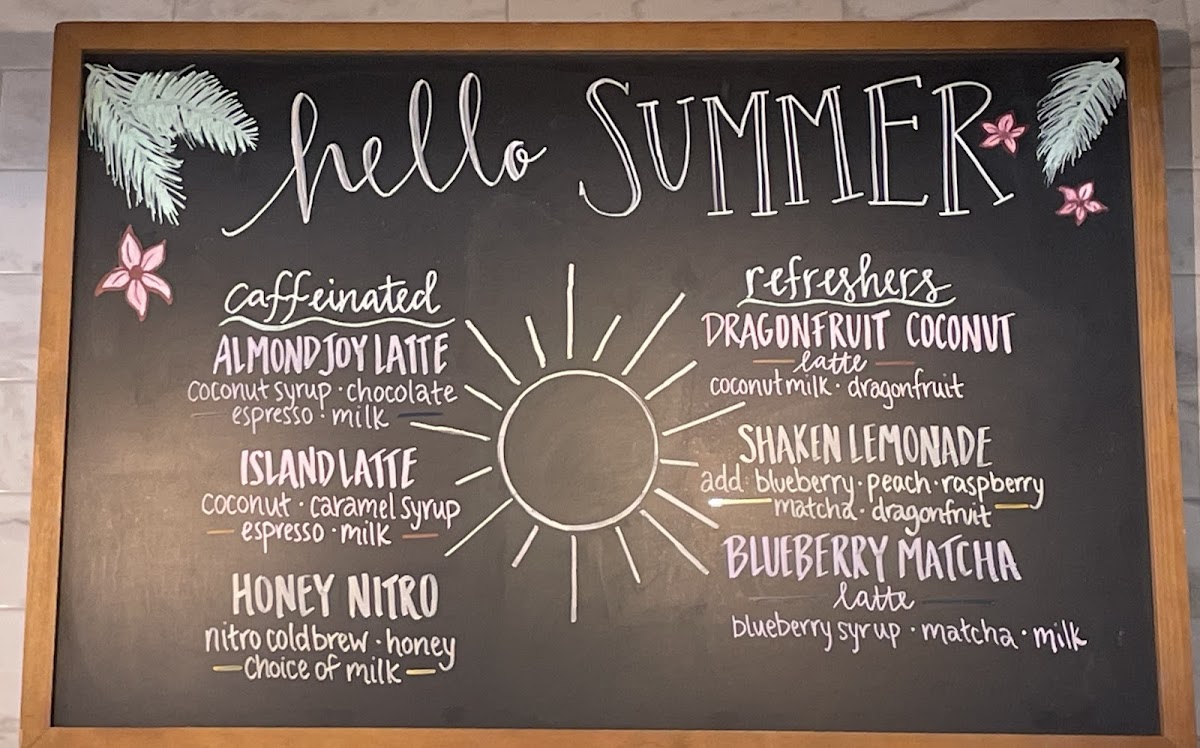 hello SUMMER
caffeinated
ALMOND JOY LATTE
coconut syrup · chocolate
espresso · milk
ISLAND LATTE
coconut · caramel syrup
espresso · milk
HONEY NITRO
nitro cold brew · honey
choice of milk
refreshers
DRAGONFRUIT COCONUT
latte
coconut milk · dragonfruit
SHAKEN LEMONADE
add: blueberry · peach · raspberry
matcha · dragonfruit
BLUEBERRY MATCHA
latte
blueberry syrup · matcha · milk